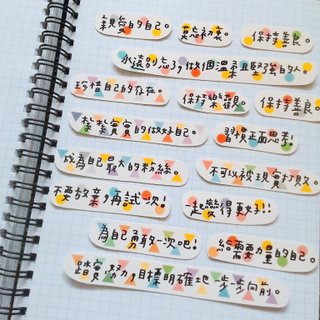 親愛的自己。
莫忘初衷。
保持善良。
永遠別忘了,做個溫柔且堅強的人。
珍惜自己的存在。
保持樂觀。
保持善良。
紮紮實實的做好自己。
習慣正面思考!
成為自己最大的粉絲。
不可以被現實打敗。
不要放棄,再試一次!
起變得更好!!
為自己勇敢一次吧!
給需要力量的自己。
踏實,努力,目標明確地一步一步向前。